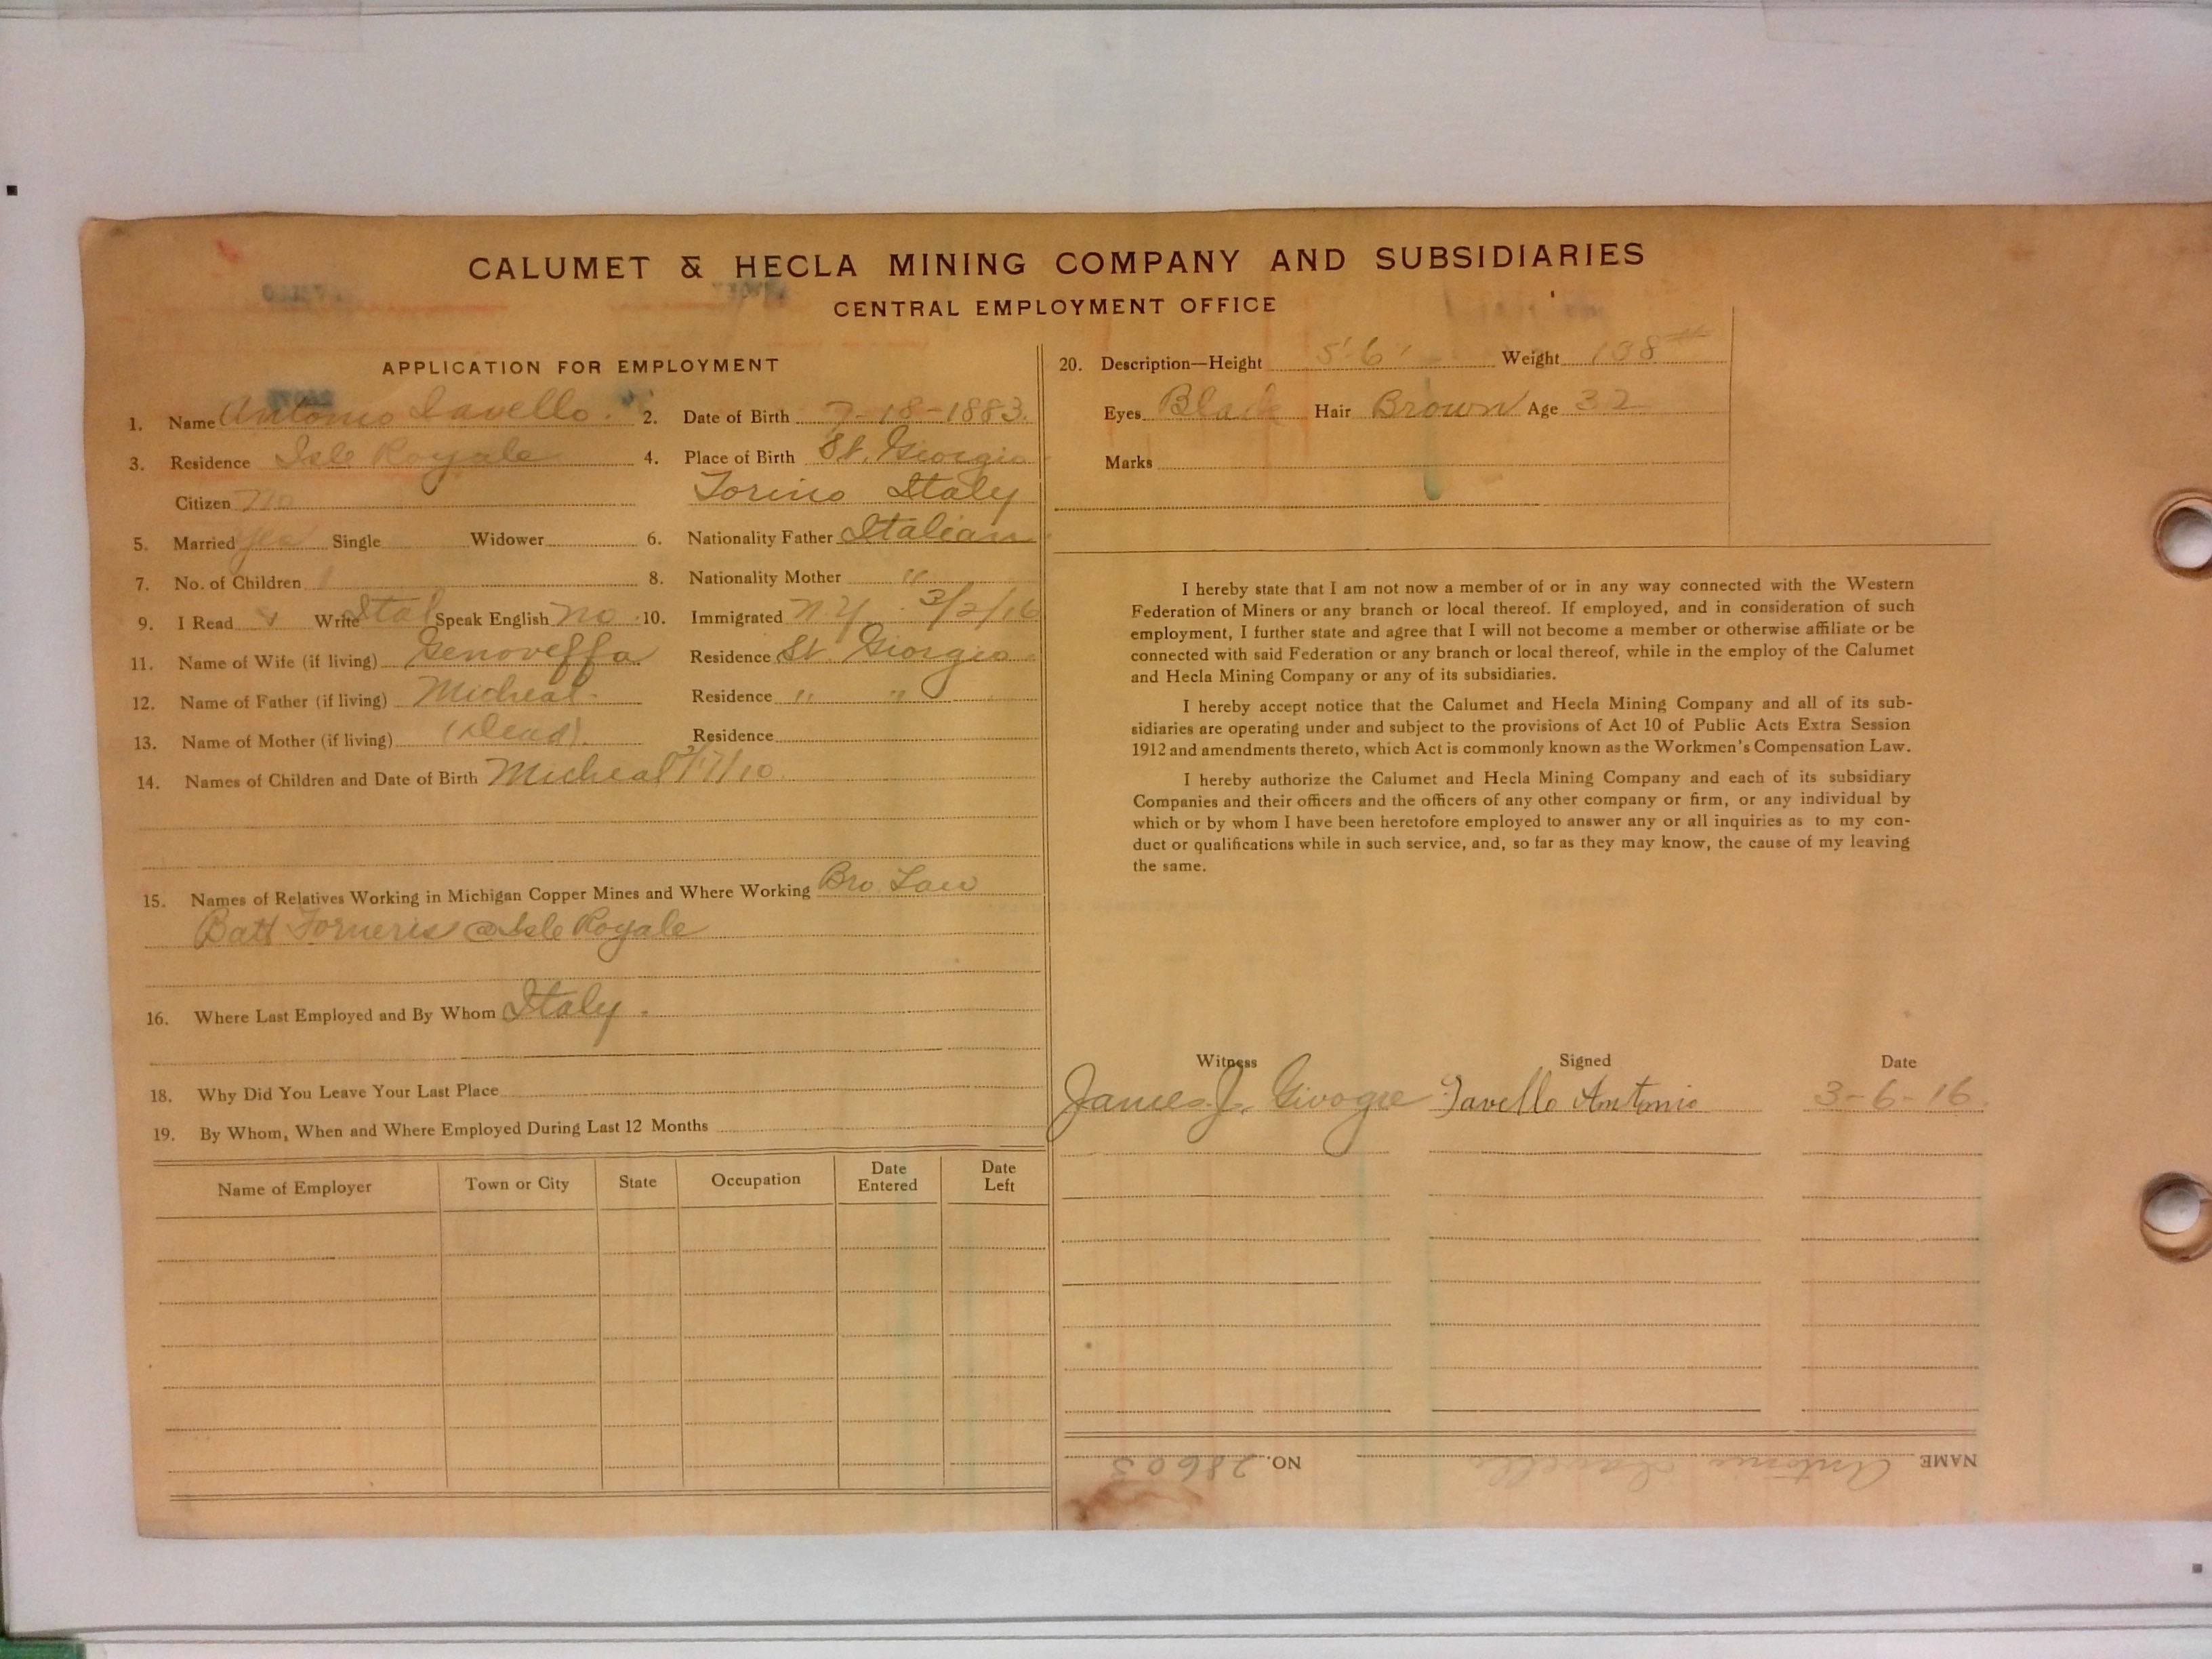 CALUMET & HECLA MINING COMPANY AND SUBSIDIARIES
CENTRAL EMPLOYMENT OFFICE
APPLICATION FOR EMPLOYMENT
1. Name Antonio 2. Date of Birth 7-18-1883.
3. Residence Isle Royale 4. Place of Birth St. Giorgio
Citizen No Torino Italy
5. Married Yes Single Widower 6. Nationality Father Italian
7. No. of Children 1 8. Nationality Mother "
9. I Read & Write Ital Speak English No. 10. Immigrated N.Y. 3/2/16
11. Name of Wife (if living) Genoveffa Residence St. Giorgio
12. Name of Father (if living) Micheal Residence " "
13. Name of Mother (if living) (Dead) Residence
14. Names of Children and Date of Birth Micheal
15. Names of Relatives Working in Michigan Copper Mines and Where Working Bro. Law
Batt Forneris @ Isle Royale
16. Where Last Employed and By Whom Italy.
18. Why Did You Leave Your Last Place
19. By Whom, When and Where Employed During Last 12 Months
Name of Employer Town or City State Occupation Date Entered Date Left
20. Description—Height 5'6" Weight
Eyes Black Hair Brown Age 32
Marks
I hereby state that I am not now a member of or in any way connected with the Western
Federation of Miners or any branch or local thereof. If employed, and in consideration of such
employment, I further state and agree that I will not become a member or otherwise affiliate or be
connected with said Federation or any branch or local thereof, while in the employ of the Calumet
and Hecla Mining Company or any of its subsidiaries.
I hereby accept notice that the Calumet and Hecla Mining Company and all of its sub-
sidiaries are operating under and subject to the provisions of Act 10 of Public Acts Extra Session
1912 and amendments thereto, which Act is commonly known as the Workmen's Compensation Law.
I hereby authorize the Calumet and Hecla Mining Company and each of its subsidiary
Companies and their officers and the officers of any other company or firm, or any individual by
which or by whom I have been heretofore employed to answer any or all inquiries as to my con-
duct or qualifications while in such service, and, so far as they may know, the cause of my leaving
the same.
Witness Signed Date
James J. Antonio 3-6-16.
NAME Antonio NO. 28603